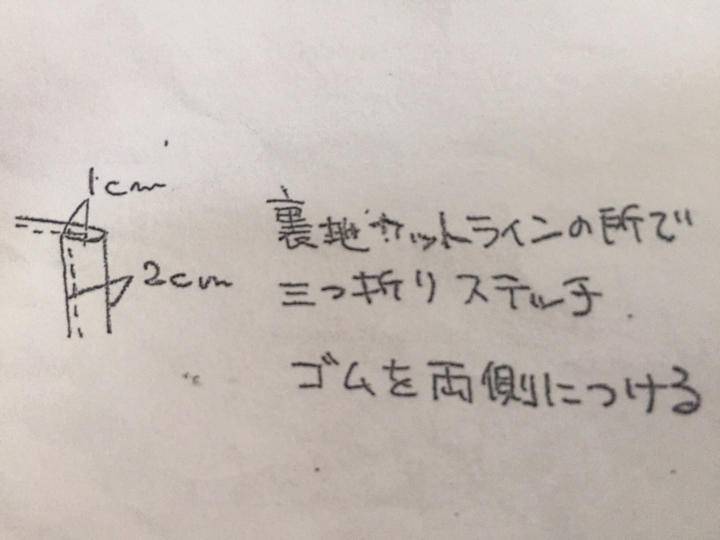 1cm
2cm
裏地カットラインの所で
三つ折りステッチ
ゴムを両側につける